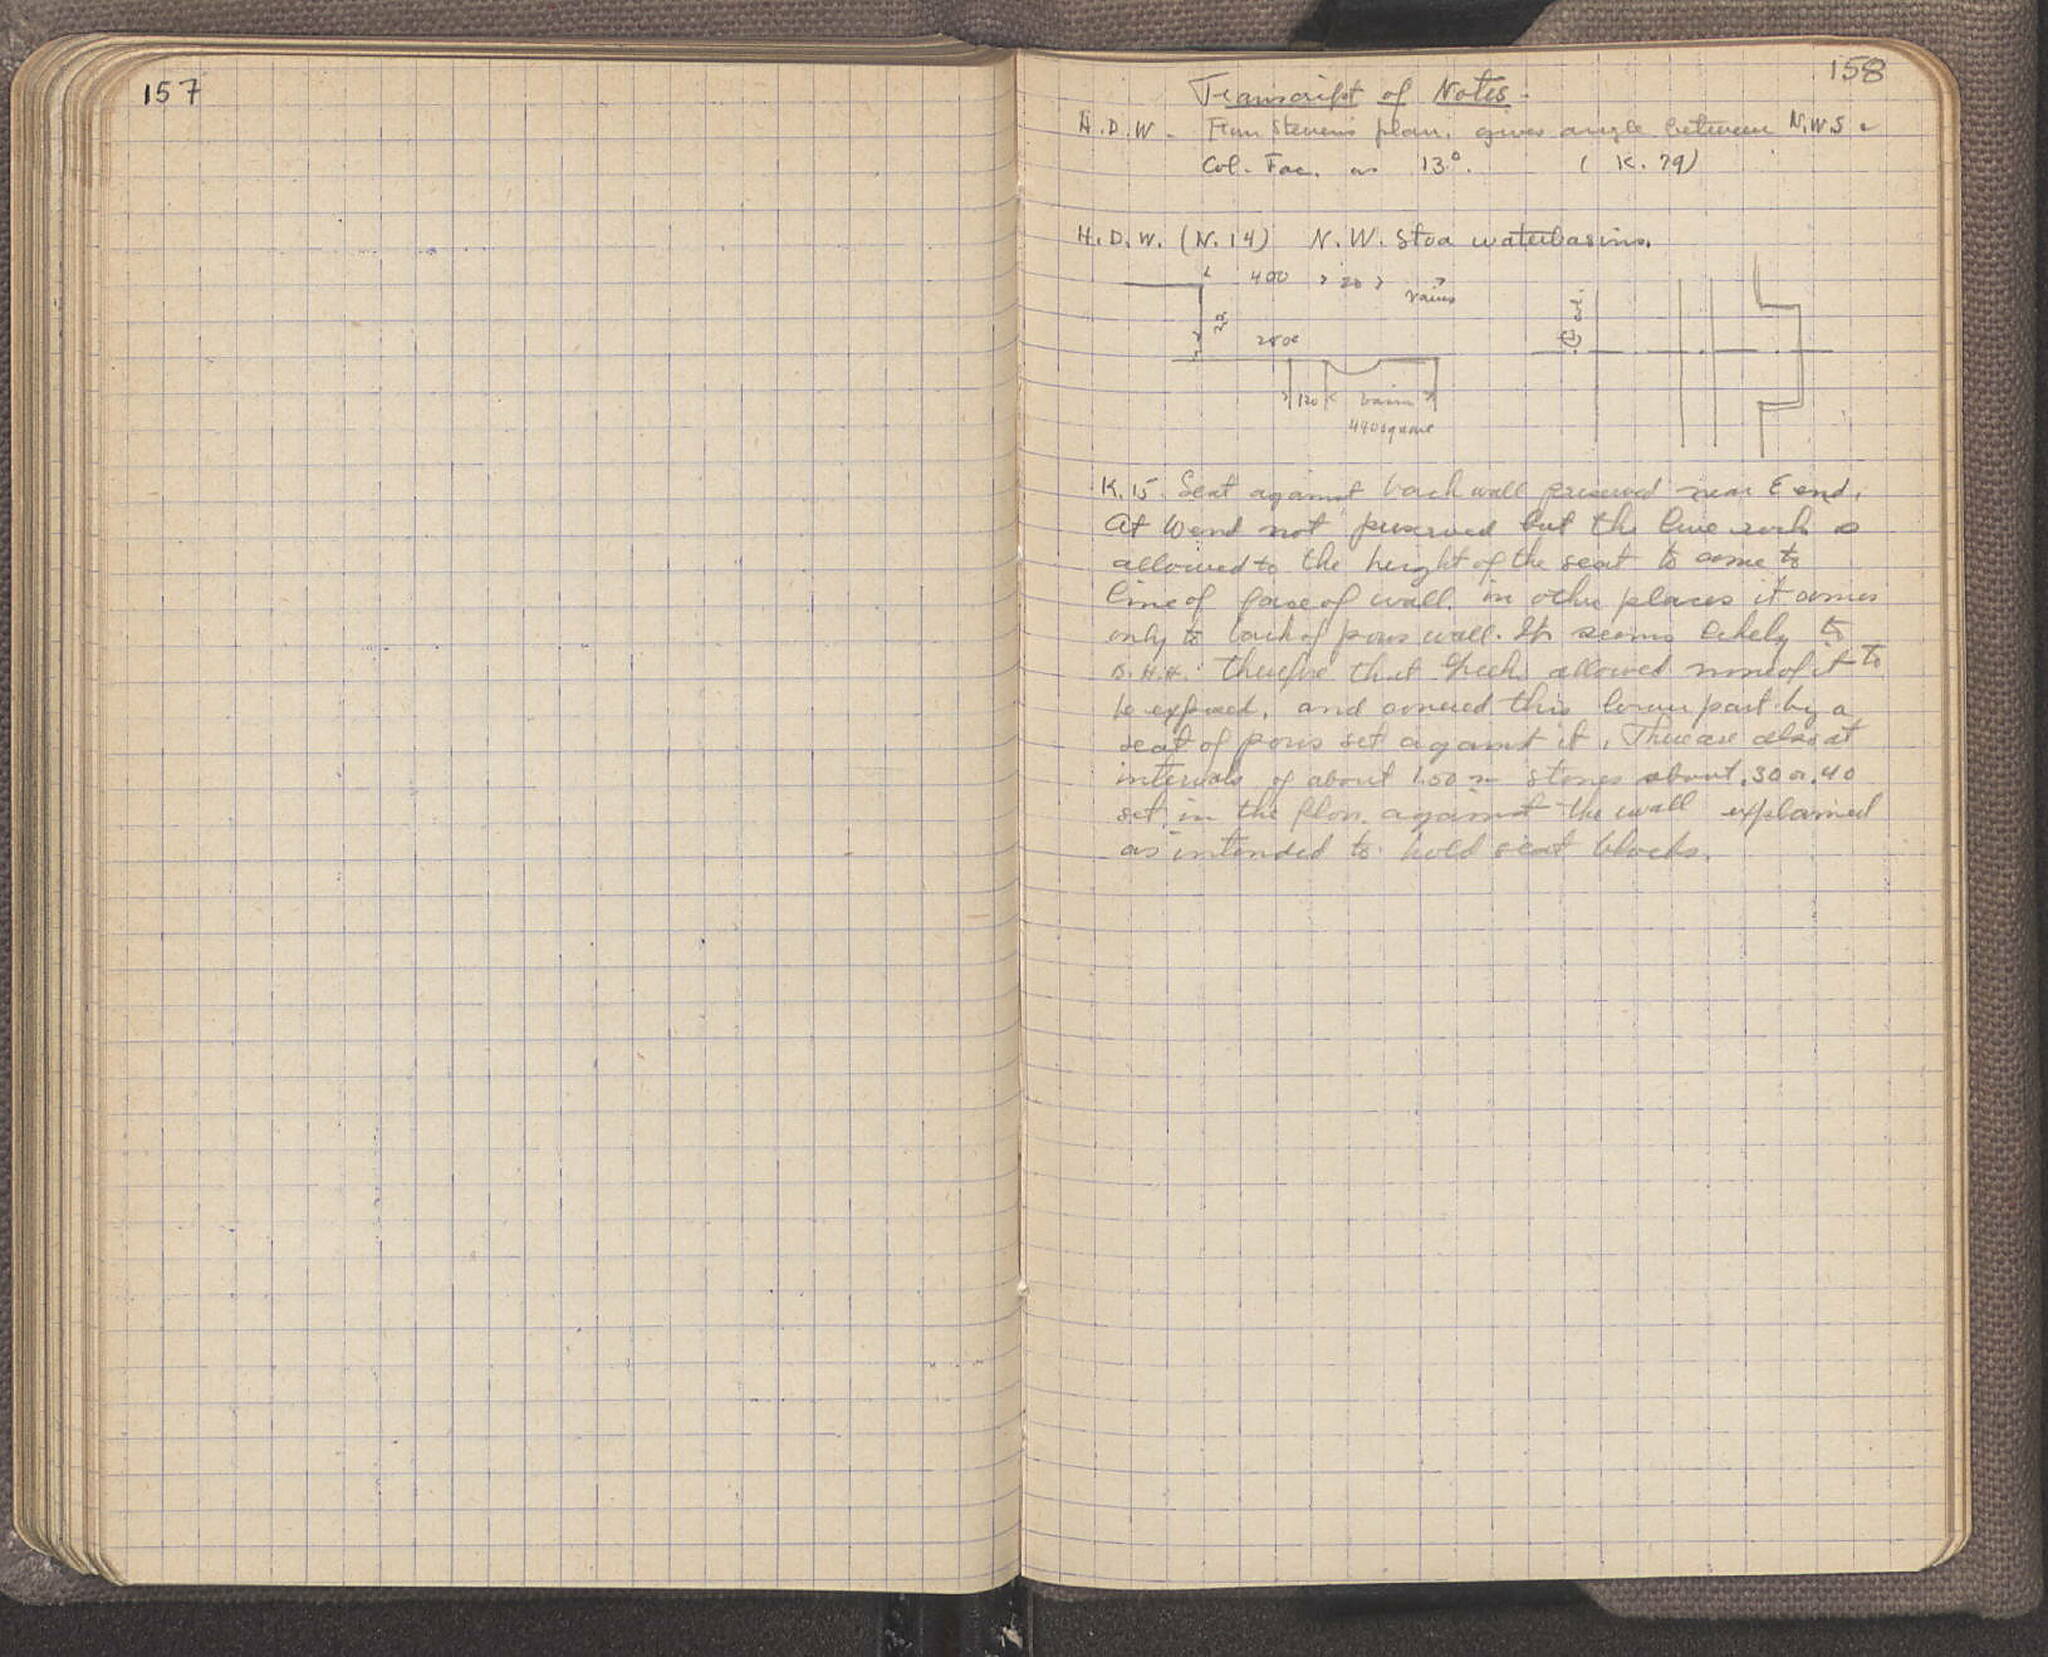 157
158
Transcript of Notes.
H.D.W. From Stevens plan. gives angle between N.W.S &
Col. Fac. as 13°. (K. 79)
H.D.W. (N. 14) N.W. Stoa waterbasins.
400 20
varies
120 basin
440 square
col.
K. 15. Seat against back wall preserved near E end.
At W end not preserved but the live rock is
allowed to the height of the seat to come to
line of face of wall. in other places it comes
only to back of poros wall. It seems likely to
B.H.H. therefore that Greek allowed none of it to
be exposed, and covered this lower part by a
seat of poros set against it. There are also at
intervals of about 1.50 m stones about .30 or .40
set in the floor against the wall explained
as intended to hold seat blocks.